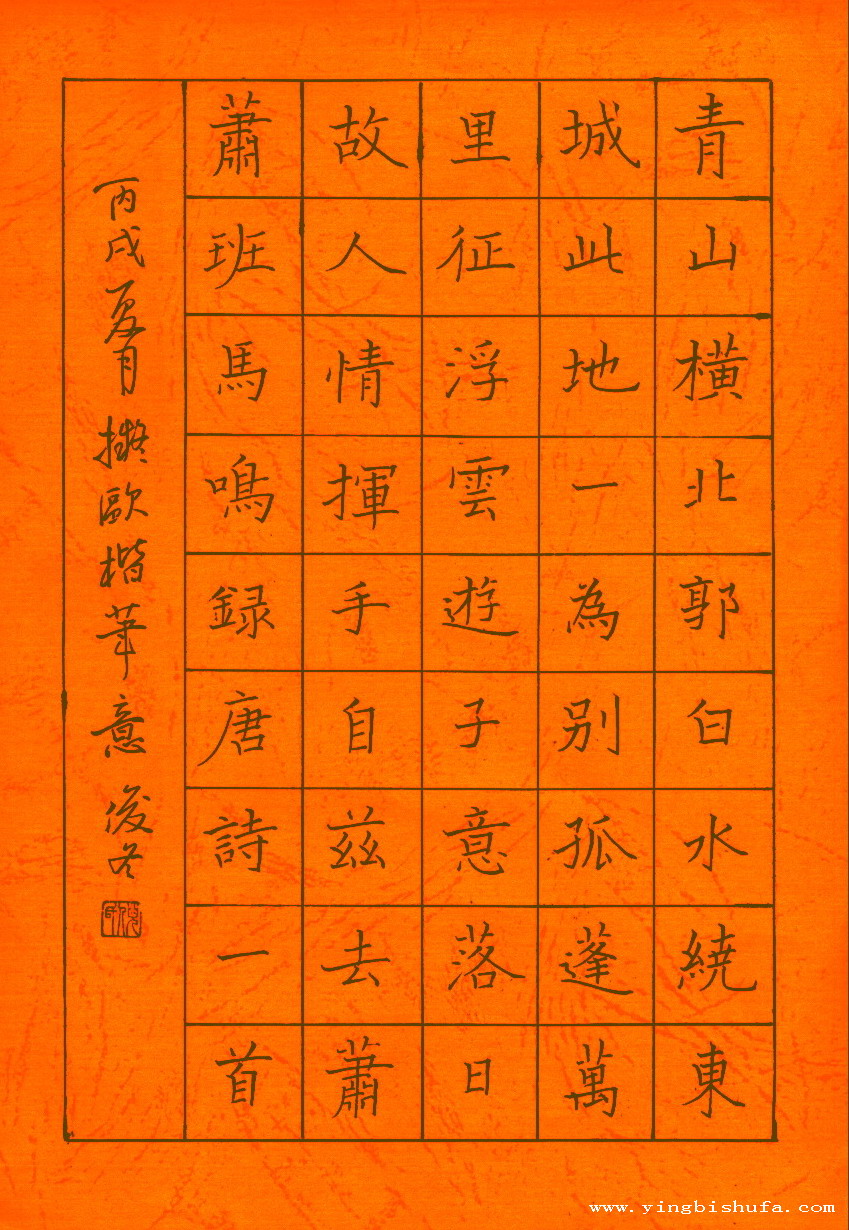 青山橫北郭白水繞東
城此地一為别孤蓬萬
里征浮雲遊子意落日
故人情揮手自茲去蕭
蕭班馬鳴録唐詩一首
丙戌夏月擬歐楷筆意 俊冬
www.yingbishufa.com